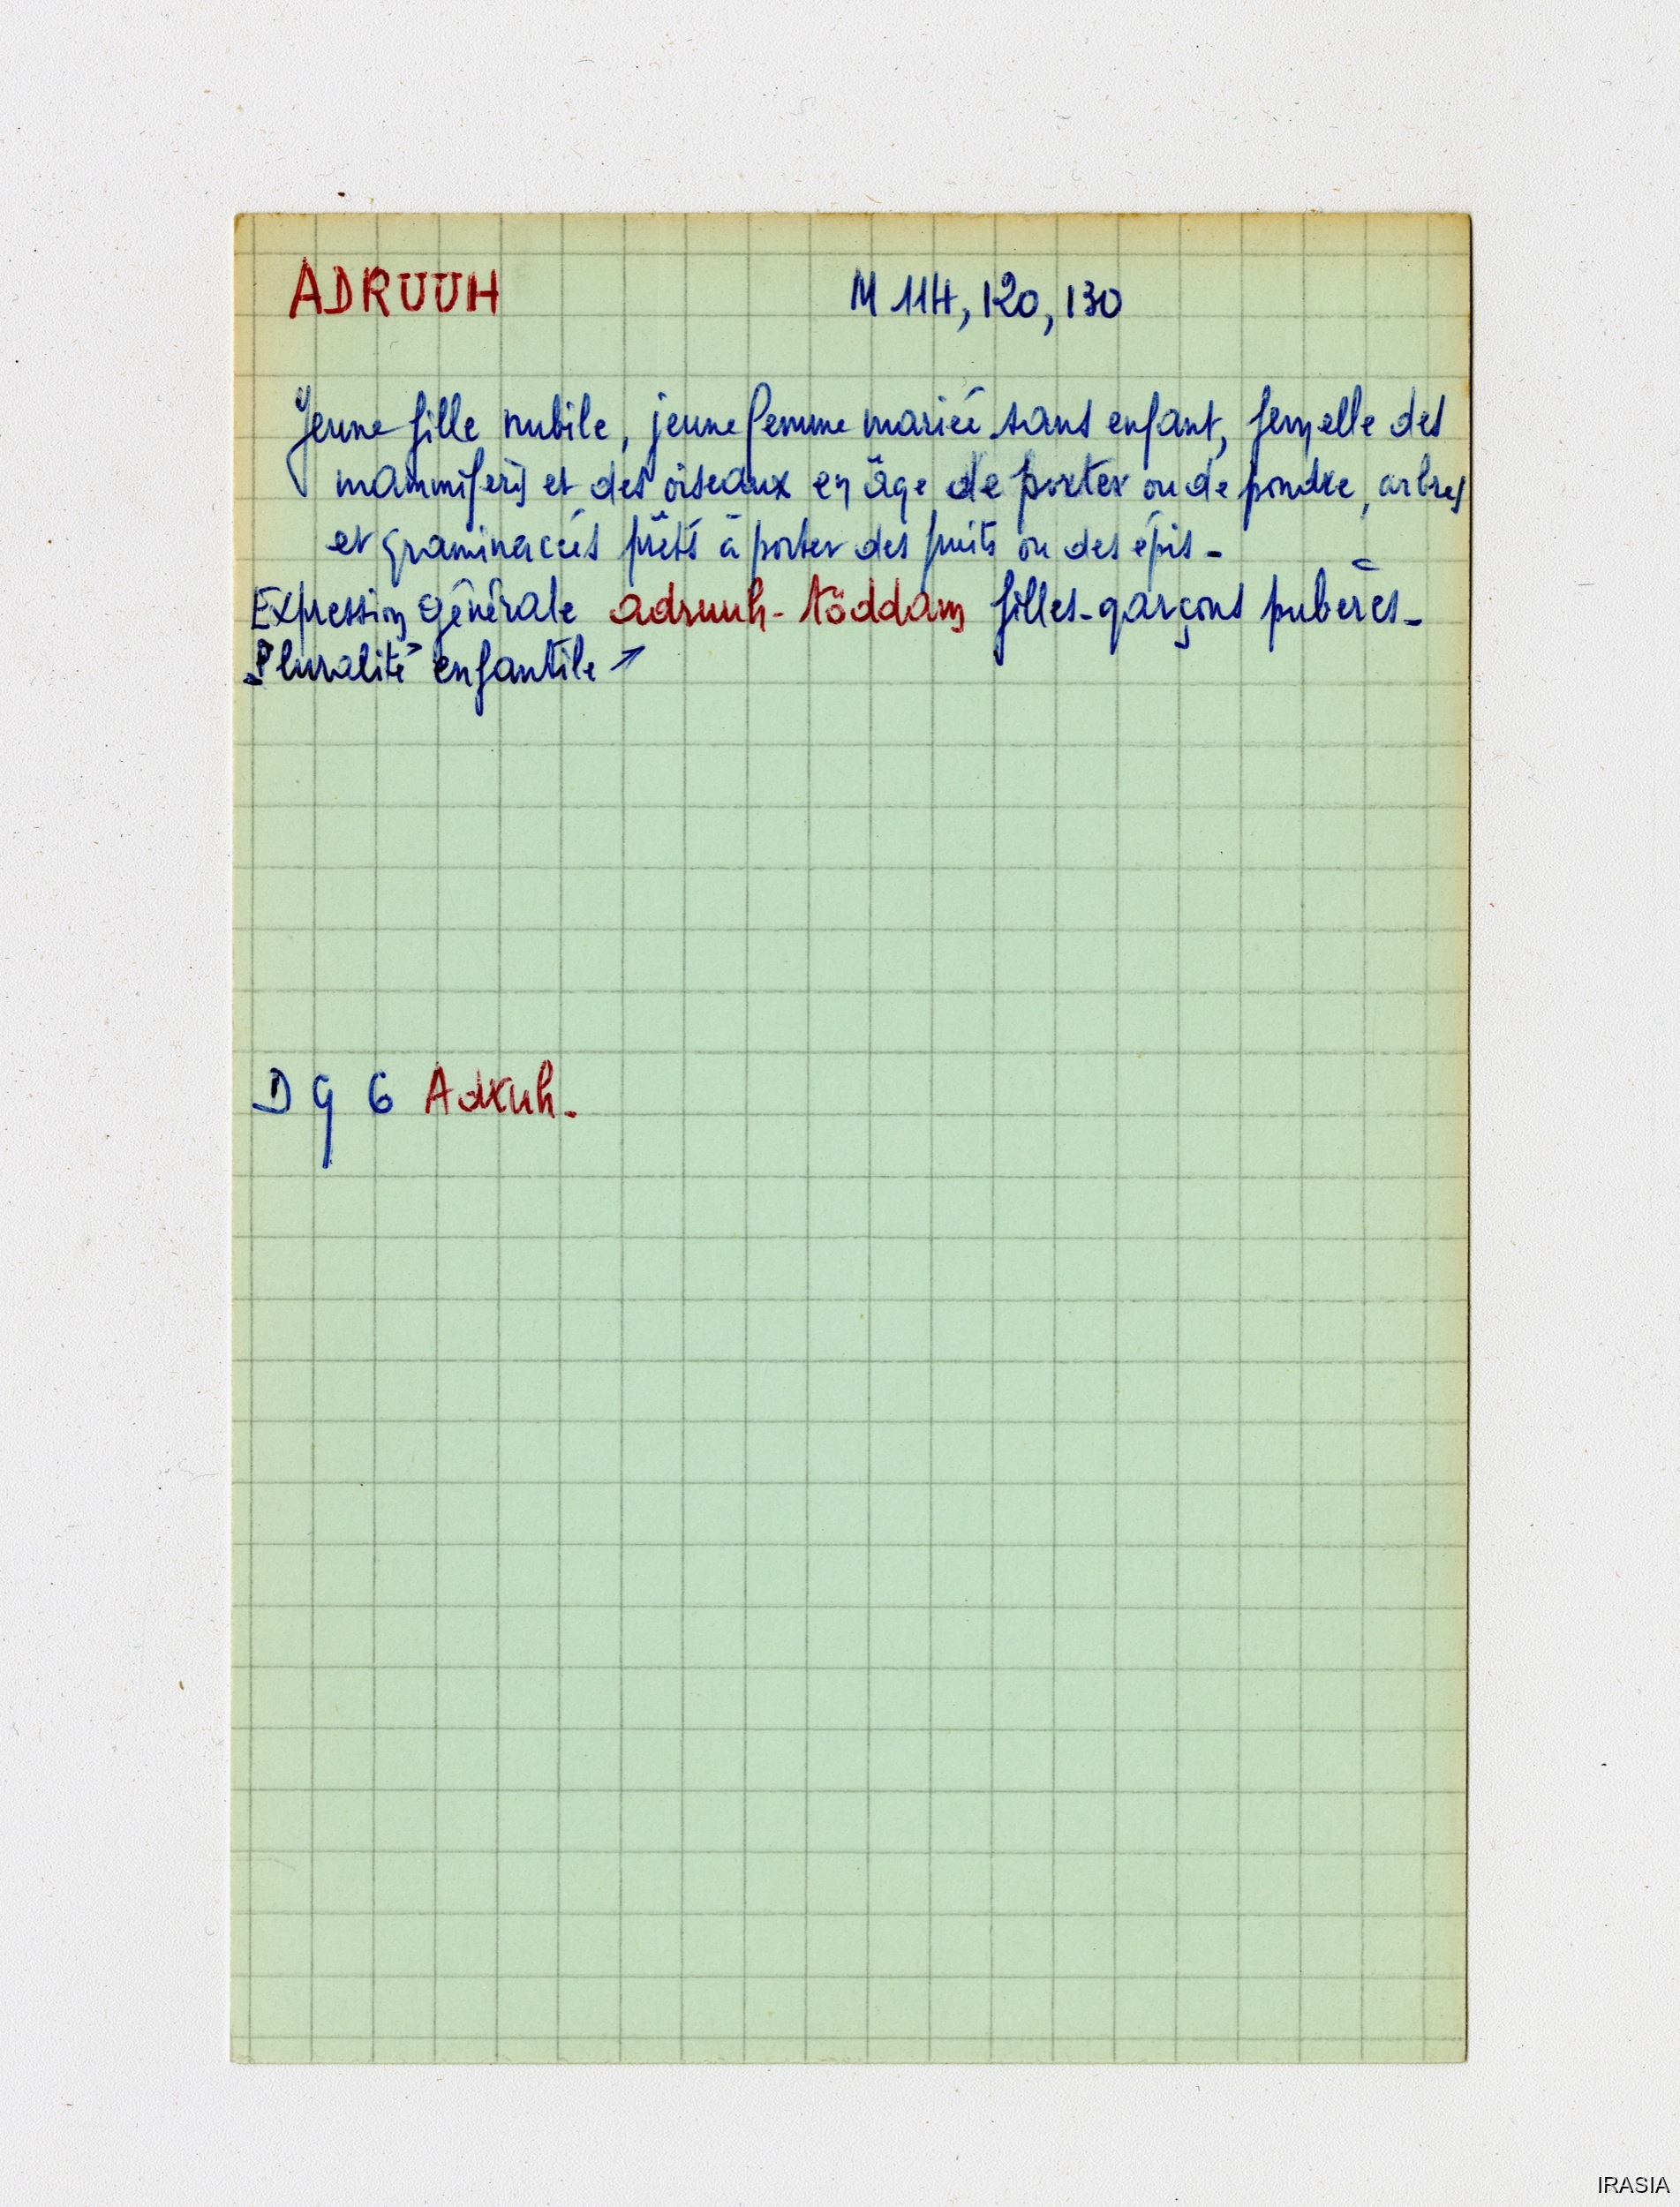 ADRUUH M 114, 120, 130
Jeune fille nubile, jeune femme mariée sans enfant, femelle des
mammifères et des oiseaux en âge de porter ou de pondre, arbres
et graminacées prêts à porter des fruits ou des épis -
Expression générale adruuh - töddam filles - garçons pubères -
Pluralité enfantile
D G 6 Adruh -
IRASIA